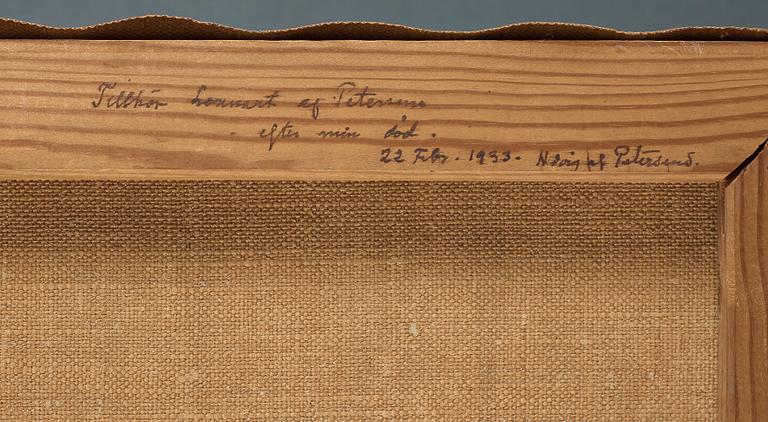 Tillhör Lennart af Petersens
efter min död.
22 Febr. 1933. af Petersens.